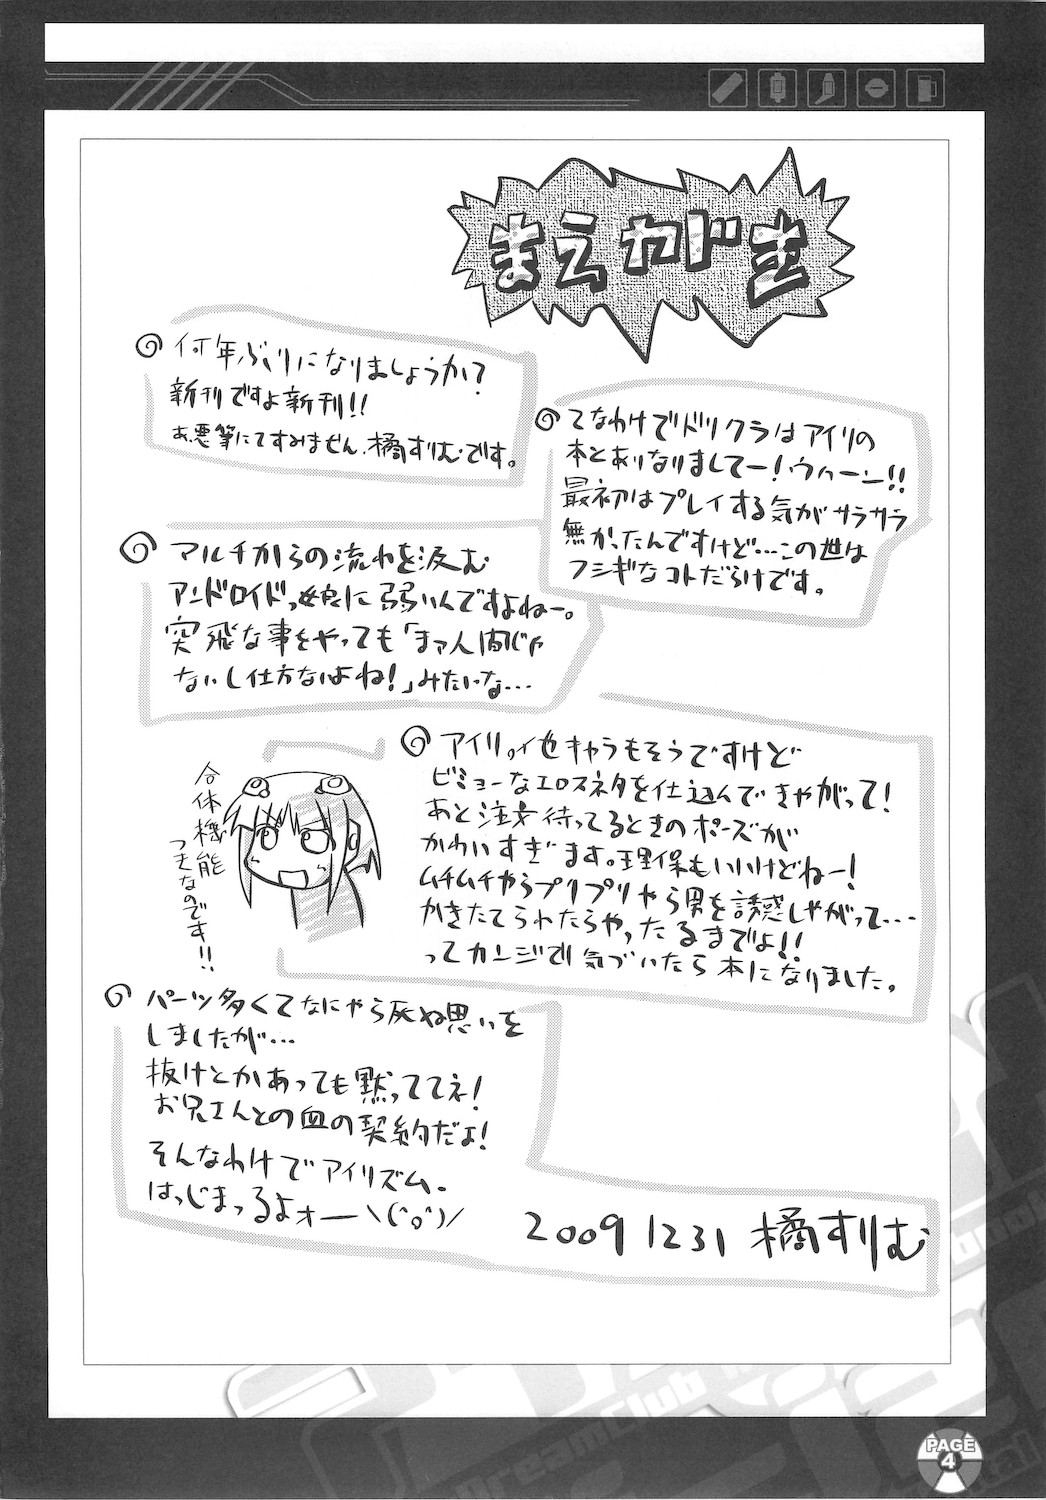 まえがき
何年ぶりになりましょうか?
新刊ですよ新刊!!
あ、悪筆にてすみません、橘すりむです。
てなわけでドリクラはアイリの
本とありなりましてー!ウゥーン!!
最初はプレイする気がサラサラ
無かったんですけど…この世は
フシギなコトだらけです。
マルチからの流れを汲む
アンドロイドっ娘に弱いんですよねー。
突飛な事をやっても「まァ人間じゃ
ないし仕方ないよね!」みたいな…
アイリィ他キャラもそうですけど
ビミョーなエロスネタを仕込んできやがって!
あと注文待ってるときのポーズが
かわいすぎます。理保もいいけどねー!
ムチムチやらプリプリやら男を誘惑しやがって…
かきたてられたらやったるまでよ!!
ってカンジで気づいたら本になりました。
合体機能
つきなのです!!
パーツ多くてなにやら死ぬ思いを
しましたが…
抜けとかあっても黙っててネ!
お兄さんとの血の契約だよ!
そんなわけでアイリズム、
はっじまっるよォー\(゜o゜)/
2009 1231 橘すりむ
DreamClub
PAGE
4